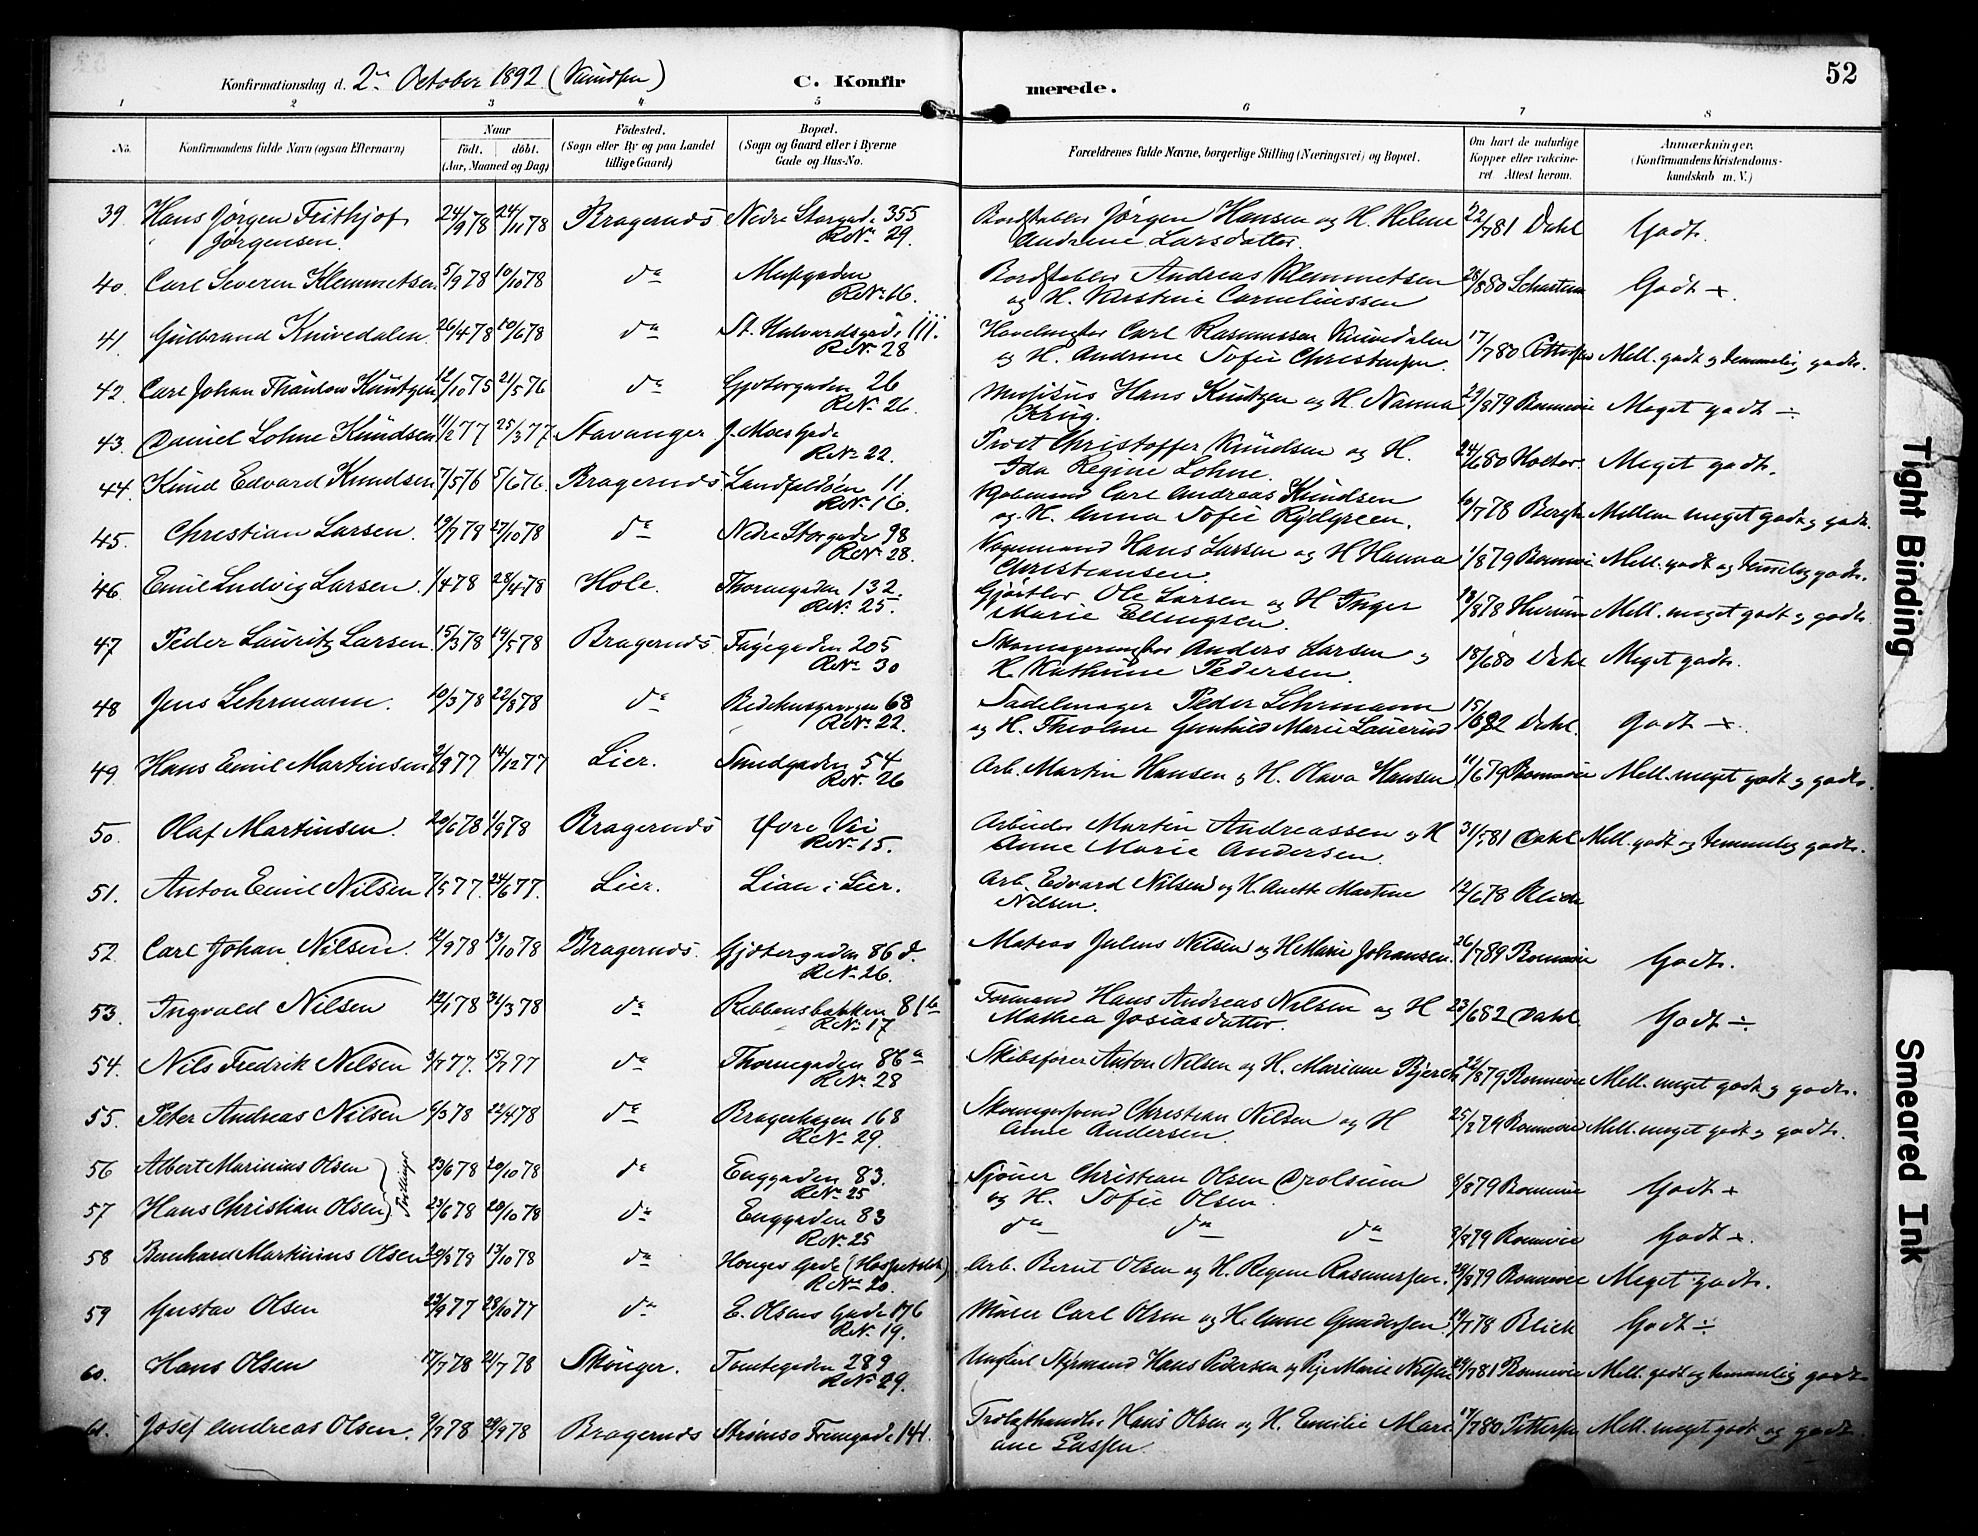 52
Konfirmationsdag d. 2den October 1892 (Knudsen) C. Konfirmerede.
1 2 3 4 5 6 7 8
No. Konfirmandens fulde Navn (ogsaa Efternavn) Naar født. døbt. (Aar, Maaned og Dag) Fødested. (Sogn eller By og paa Landet tillige Gaard) Bopæl. (Sogn og Gaard eller i Byerne Gade og Hus-No. Forældrenes fulde Navne, borgerlige Stilling (Næringsvei) og Bopæl. Om havt de naturlige Kopper eller vakcineret. Attest herom. Anmærkninger. (Konfirmandens Kristendomskundskab m. V.)
39 Hans Jørgen Frithjof 24/9 78 24/11 78 Bragernæs Nedre Storgade 355 Jørgen Hansen og H. Helene 22/7 81 Dahl Godt.
Jørgensen. R.No. 29. Andrene Larsdatter.
40. Carl Severin Klemmetsen 5/9 78 10/10 78 do R.No. 16. Andreas Klemmetsen 28/8 80 Godt
og H. Karstine Corneliussen
41. Gulbrand Knivedalen 26/4 78 10/6 78 do St. Halvardsgade 111. Carl Rasmussen Knivedalen 17/7 80 Mell. godt og temmelig godt.
R.No. 28 og H. Andrine Sofie Christensen.
42. Carl Johan Thaulow Küntzen 12/10 75 21/5 76 do Gjætergaden 26 Musikus Hans Küntzen og H. Nanna 29/8 79 Meget godt ÷
R.No. 26. Krug.
43. Daniel Lohne Knudsen 11/2 77 25/3 77. Stavanger J. Moes Gade Provst Christoffer Knudsen og H. 24/6 80 Meget godt.
R.No. 22. Ida Regine Lohne.
44. Knud Edvard Knudsen 7/5 76 5/6 76. Bragernæs Landfaldøen 11 Carl Andreas Knudsen 10/7 78 Bergh Mellem meget godt og godt.
R.No. 16. og H. Anna Sofie Rydgreen.
45. Christian Larsen. 19/7 78 27/10 78 do Nedre Storgade 98 Vognmand Hans Larsen og H Hanna 1/8 79 Mell. godt og temmelig godt.
R.No. 28. Christiansen.
46. Emil Ludvig Larsen. 1/4 78 28/4 78 Hole. Thornegaden 132. Gjørtler Ole Larsen og H Inger 18/8 78 Mell. meget godt og godt.
R.No. 25. Marie Ellingsen.
47 Peder Lauritz Larsen. 15/3 78 19/5 78 Bragernæs. Fagegaden 205 Anders Larsen og 18/6 80 Dahl Meget godt.
R.No. 30 H. Kathrine Pedersen.
48 Jens Lehrmann. 10/3 78 22/8 78 do Bedehusgangen 68 Sadelmager Peder Lehrmann 15/6 82 Dahl. Godt
R.No. 22. og H. Theoline Gunhild Marie Lauerud
49. Hans Emil Martinsen 2/9 77 14/12 77 Lier. Sundgaden 54 Arb. Martin Hansen og H. Olava Hansen 11/6 79 Mell. meget godt og godt.
R.No. 26
50. Olaf Martinsen. 20/6 78 1/9 78 Bragernæs Øvre Vei Arbeider Martin Andreassen og H 31/5 81 Dahl Mell. godt og temmelig godt.
R.No. 15. Anne Marie Andersen.
51. Anton Emil Nilsen 7/5 77. 24/6 77. Lier. Lian i Lier. Arb. Edvard Nilsen og H. Anette Martine 12/6 78 Blich
Nilsen.
52. Carl Johan Nilsen. 12/9 78 13/10 78 Bragernæs. Gjætergaden 86 d. Matros Julius Nilsen og H Marie Johansen. 26/7 89 Godt.
R.No. 26.
53. Ingvald Nilsen 12/1 78 31/3 78 do Ribbansbakken 81 b Formand Hans Andreas Nilsen og H 23/6 82 Dahl Godt ÷
R.No. 17 Mathea Josiasdatter.
54. Nils Fredrik Nilsen 3/7 77. 15/7 77 do Thornegaden 86 a Skibsfører Anton Nilsen og H. Mariane Bjerch 22/8 79 Mell. meget godt og godt.
R.No. 28
55. Peter Andreas Nilsen 6/3 78 22/4 78 do Bragerhagen 168 Skomagersvend Christian Nilsen og H 25/7 79 Mell. meget godt og godt.
R.No. 29. Anne Andersen.
56 Albert Marinius Olsen 23/6 78 20/10 78 do Enggaden 83. Sjouer Christian Olsen 8/8 79 Godt
Tvillinger R.No. 25 og H. Sofie Olsen.
57 Hans Christian Olsen 23/6 78 20/10 78 do Enggaden 83 do do do 8/8 79 Godt
R.No. 25
58 Bernhard Martinius Olsen 20/8 78 13/10 78 do Hauges Gade Arb. Bernt Olsen og H. Regine Rasmussen. 29/8 79 Meget godt.
R.No. 20.
59 Gustav Olsen 23/9 77 28/10 77 do E. Olsens Gade 176 Murer Carl Olsen og H. Anne Gundersen. 19/7 78 Blich Godt ÷
R.No. 19.
60. Hans Olsen 17/7 78 21/7 78 Skouger. Tomtegaden 289 Ungkarl Styrmand Hans Pedersen og Pige Marie Nilsen 29/7 81 Mell. godt og temmelig godt
R.No. 29.
61. Josef Andreas Olsen. 9/7 78 29/9 78 Bragernæs Strømsø Tomtegade 141. Trælasthandler Hans Olsen og H. Emilie Mari- 17/7 80 Mell. meget godt og godt
ane Enssen.
Tight Binding
Smeared Ink